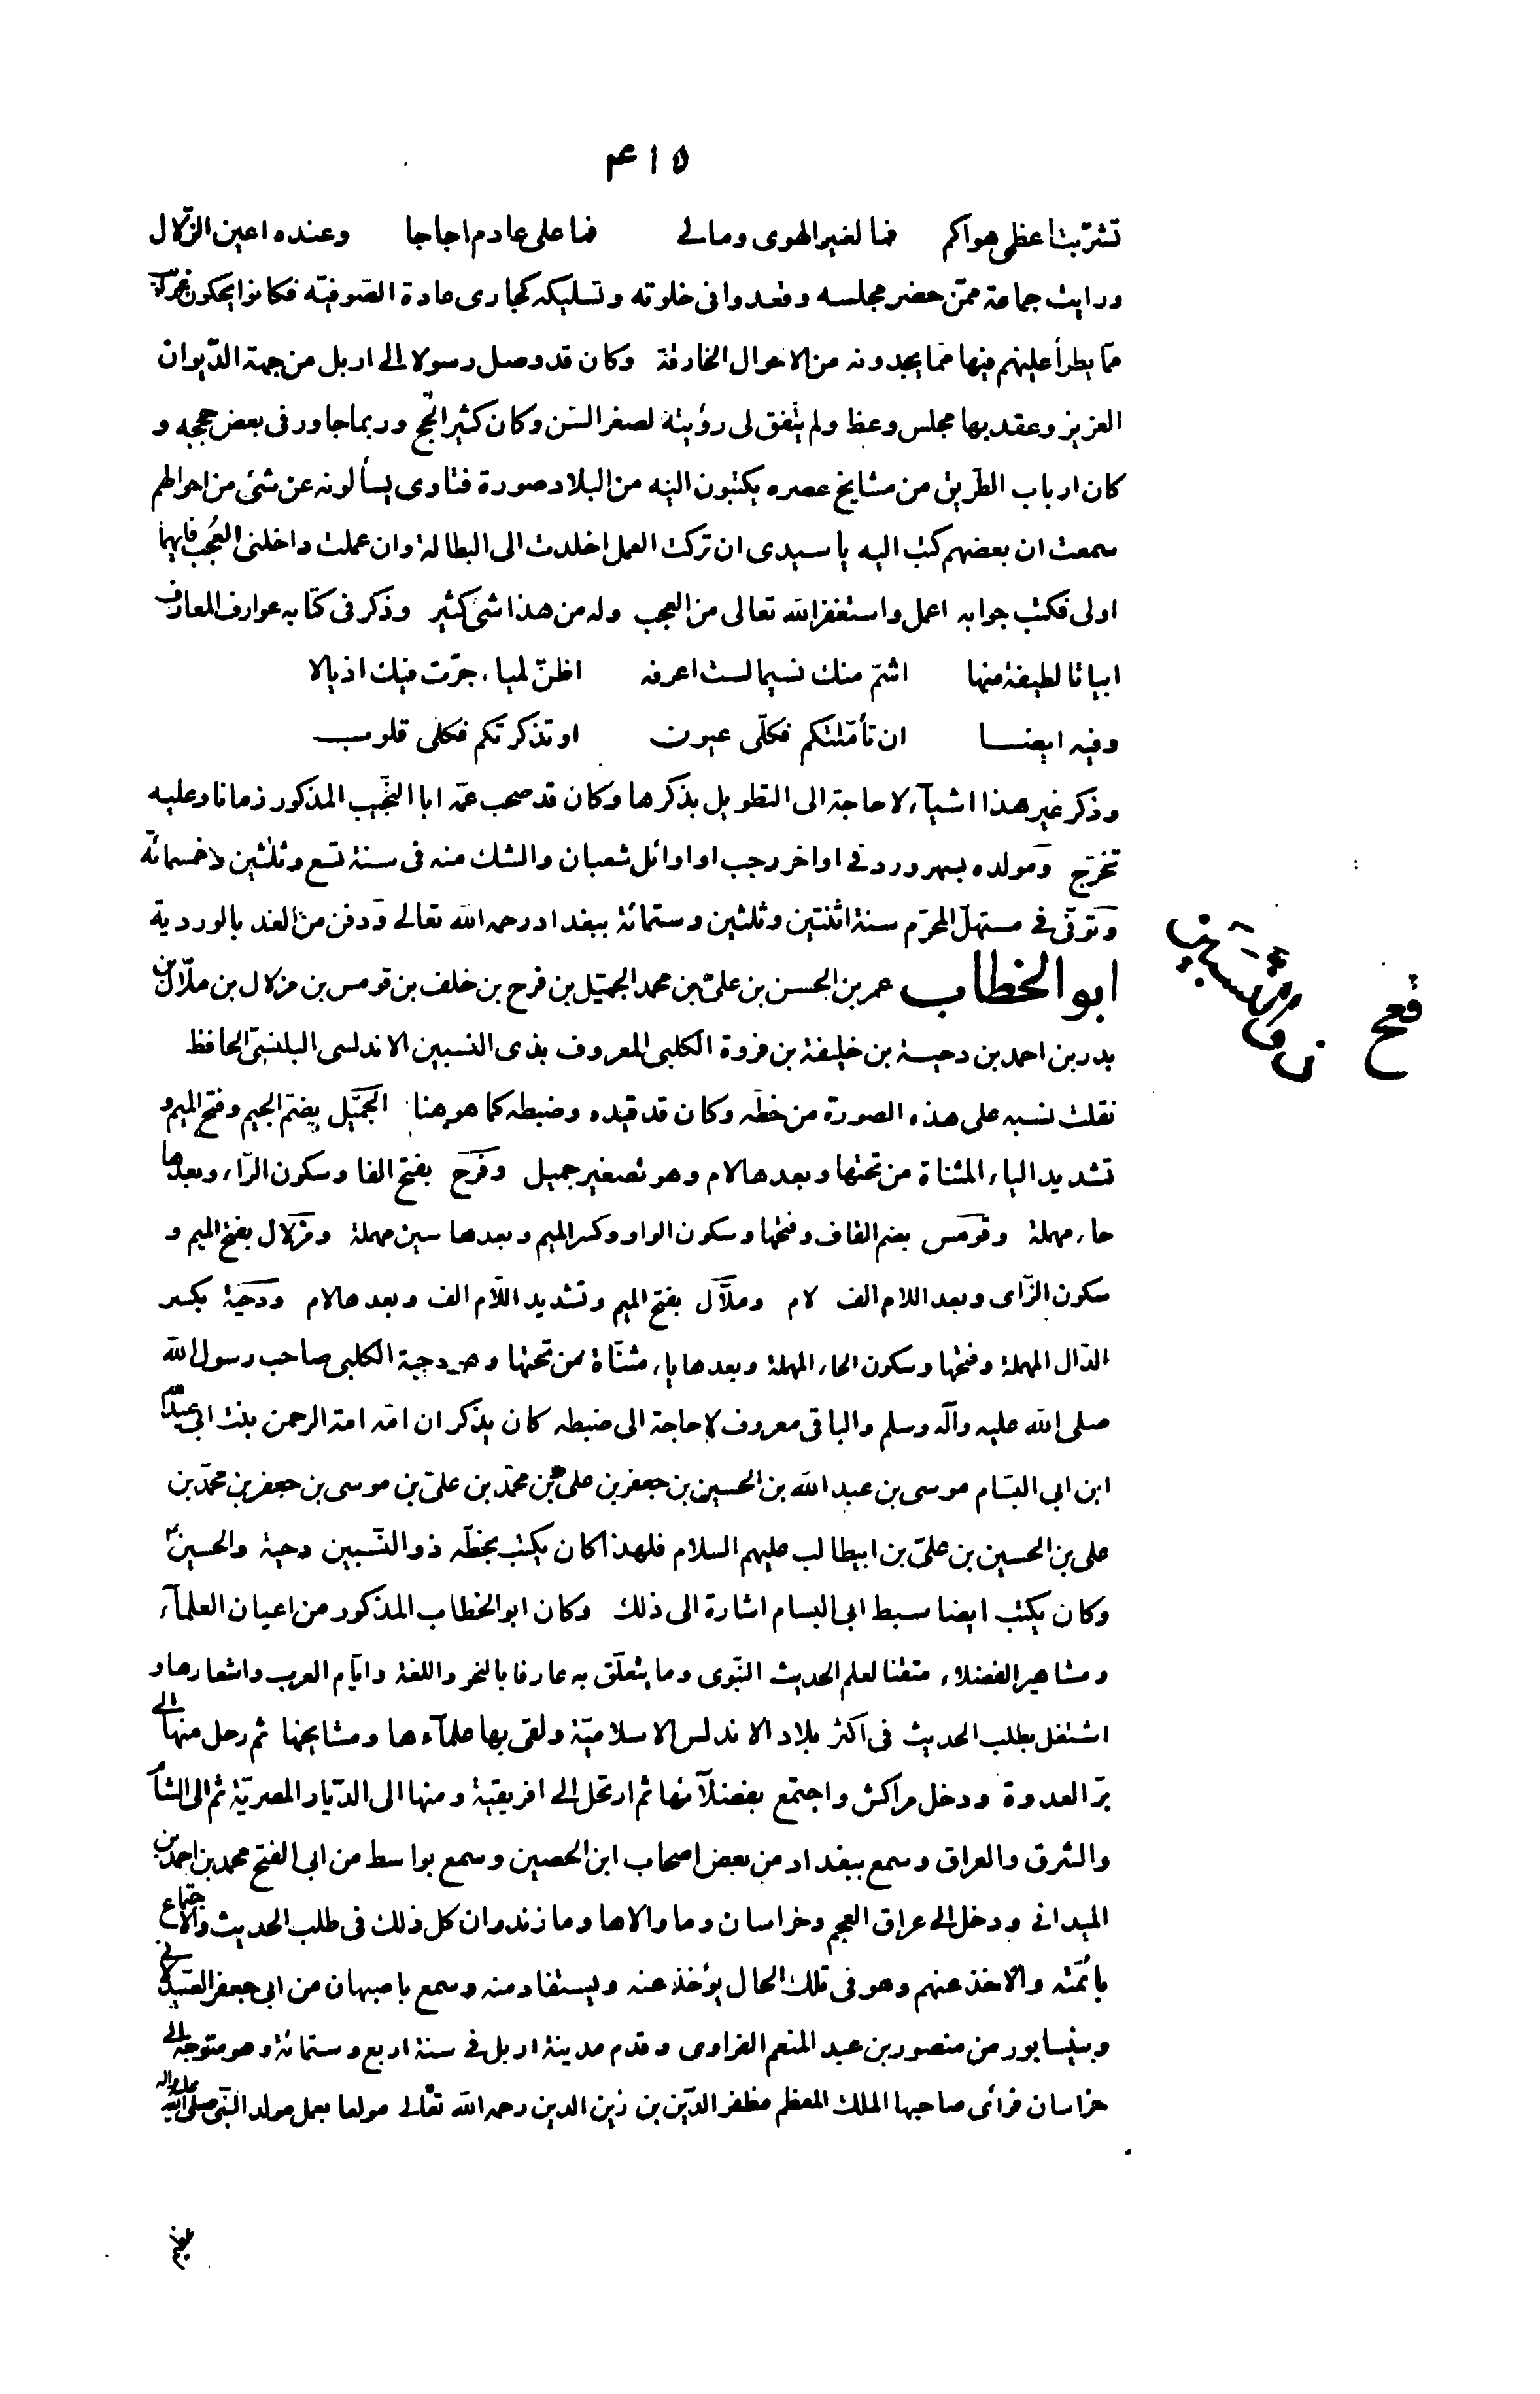 ٤١٥
تشرّبت اعظمى هواكم فما لغير الهوى ومالى فما على عادم اجاجا وعنده اعين الزّلال
ورايت جماعة ممّن حضر مجلسه وقعدوا فى خلوته وتسليكه كجارى عادة الصّوفيّة فكانوا يحكون غرائب
ممّا يطرأ عليهم فيها مما يجدونه من الاحوال الخارقة وكان قد وصل رسولا الى اربل من جهة الدّيوان
العزيز وعقد بها مجلس وعظ ولم يتّفق لى رؤيته لصغر السّن وكان كثير الحجّ وربما جاور فى بعض حججه و
كان ارباب الطّريق من مشايخ عصره يكتبون اليه من البلاد صورة فتاوى يسألونه عن شئ من احوالهم
سمعت ان بعضهم كتب اليه يا سيدى ان تركت العمل اخلدت الى البطالة وان عملت داخلنى العُجب فايهما
اولى فكتب جوابه اعمل واستغفر الله تعالى من العجب وله من هذا شئ كثير وذكر فى كتابه عوارف المعارف
ابياتا لطيفة منها اشمّ منك نسيما لست اعرفه اظنّ لمياء جرّت فيك اذيالا
وفيه ايضا ان تأمّلتكم فكلّى عيون او تذكرتكم فكلى قلوب
وذكر غير هذا اشيآء لا حاجة الى التطويل بذكرها وكان قد صحب عمّه ابا النّجيب المذكور زمانا وعليه
تخرّج ومولده بسهرورد فى اواخر رجب او اوائل شعبان والشك منه فى سنة تسع وثلثين وخمسمائة
وتوفّى فى مستهلّ المحرّم سنة اثنتين وثلثين وستمائة ببغداد رحمه الله تعالى ودفن من الغد بالوردية
ابو الخطاب عمر بن الحسن بن علىّ بن محمد الجميّل بن فرح بن خلف بن قومس بن مزلال بن ملّال بن
بدر بن احمد بن دحية بن خليفة بن فروة الكلبى المعروف بذى النسبين الاندلسى البلنسىّ الحافظ
نقلت نسبه على هذه الصورة من خطّه وكان قد قيده وضبطه كما هو هنا الجُمَيّل بضمّ الجيم وفتح الميم و
تشديد الياء المثناة من تحتها وبعدها لام وهو تصغير جميل وفَرْح بفتح الفا وسكون الرآء وبعدها
حاء مهملة وقومس بضم القاف وفتحها وسكون الواو وكسر الميم وبعدها سين مهملة ومزلال بفتح الميم و
سكون الزّاى وبعد اللام الف لام وملّال بفتح الميم وتشديد اللّام الف وبعدها لام ودحية بكسر
الدّال المهملة وفتحها وسكون الحاء المهملة وبعدها ياء مثنّاة من تحتها وهو دحية الكلبى صاحب رسول الله
صلى الله عليه وآله وسلم والباقى معروف لا حاجة الى ضبطه كان يذكر ان امّه امة الرحمن بنت ابى عبدالله
ابن ابى البسّام موسى بن عبد الله بن الحسين بن جعفر بن علىّ بن محمّد بن علىّ بن موسى بن جعفر بن محمّد بن
على بن الحسين بن علىّ بن ابيطالب عليهم السلام فلهذا كان يكتب بخطّه ذو النّسبين دحية والحسين
وكان يكتب ايضا سبط ابى البسام اشارة الى ذلك وكان ابو الخطاب المذكور من اعيان العلمآء
ومشاهير الفضلاء متقنا لعلم الحديث النّبوى وما يتعلّق به عارفا بالنحو واللغة وايّام العرب واشعارها و
اشتغل بطلب الحديث فى اكثر بلاد الاندلس الاسلاميّة ولقى بها علمآءها ومشايخها ثم رحل منها الى
برّ العدوة ودخل مراكش واجتمع بفضلآئها ثم ارتحل الى افريقية ومنها الى الدّيار المصريّة ثم الى الشأم
والشرق والعراق وسمع ببغداد من بعض اصحاب ابن الحصين وسمع بواسط من ابى الفتح محمد بن احمد بن
الميدانى ودخل الى عراق العجم وخراسان وما والاها ومازندران كل ذلك فى طلب الحديث والاجتماع
بائمّته والاخذ عنهم وهو فى تلك الحال يؤخذ عنه ويستفاد منه وسمع باصبهان من ابى جعفر الصّيدلانى
وبنيسابور من منصور بن عبد المنعم الفراوى وقدم مدينة اربل فى سنة اربع وستمائة وهو متوجّه الى
خراسان فرأى صاحبها الملك المعظم مظفر الدّين بن زين الدين رحمه الله تعالى مولعا بعمل مولد النّبى صلى الله عليه واله